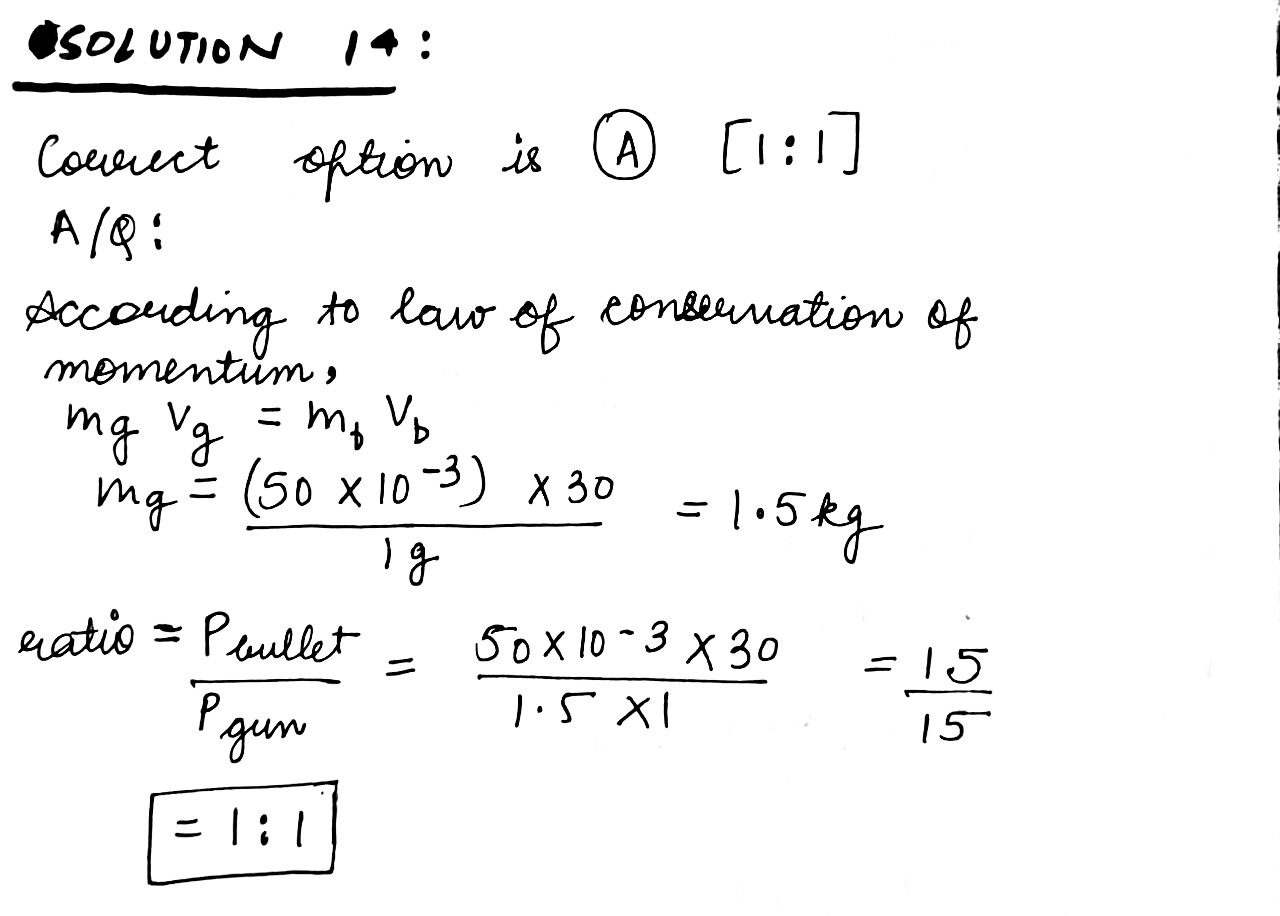 SOLUTION 14:
Correct option is A [1:1]
A/Q:
According to law of conservation of
momentum,
mg Vg = mb Vb
mg = (50 × 10^-3) × 30 / 1g = 1.5 kg
ratio = P bullet / P gun = 50 × 10 - 3 × 30 / 1.5 × 1 = 15 / 15
= 1:1